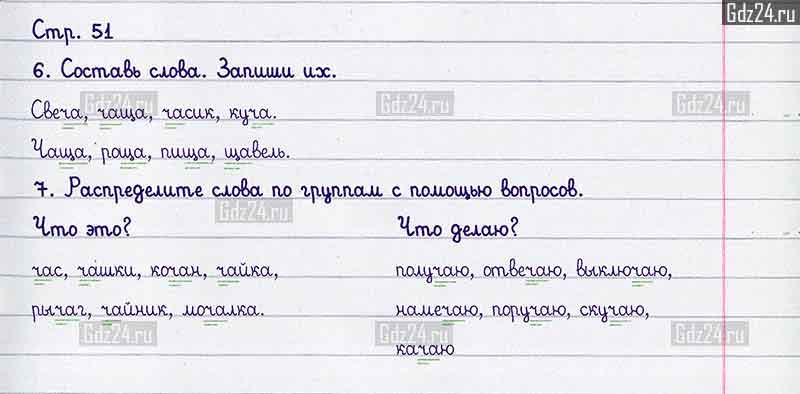 Gdz24.ru
Стр. 51
6. Составь слова. Запиши их.
Свеча, чаща, часик, куча.
Gdz24.ru Gdz24.ru Gdz24.ru
Чаща, роща, пища, щавель.
7. Распределите слова по группам с помощью вопросов.
Gdz24.ru
Что это? Что делаю?
час, чашки, кочан, чайка, получаю, отвечаю, выключаю,
рычаг, чайник, мочалка. намечаю, поручаю, скучаю,
Gdz24.ru Gdz24.ru Gdz24.ru
качаю